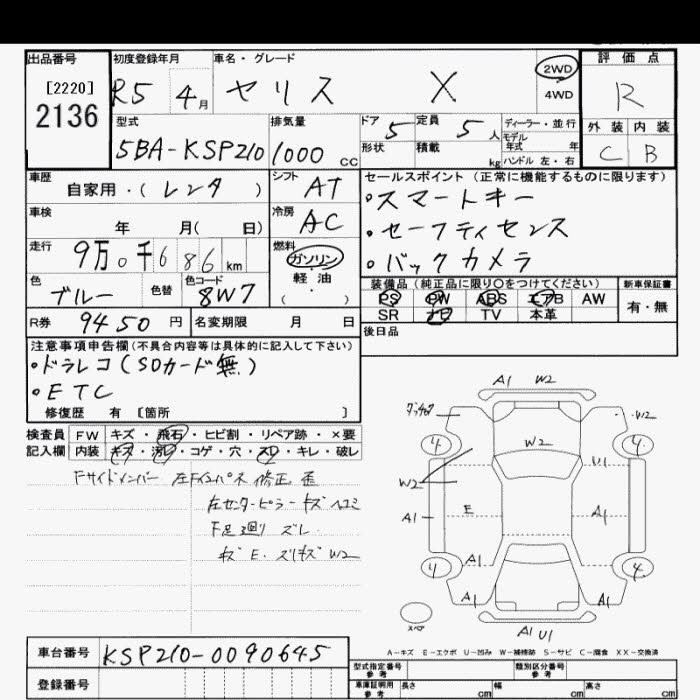 出品番号 初度登録年月 車名・グレード 評価点
[2220] R5 4月 ヤリス X 2WD R
2136 4WD
型式 排気量 ドア 定員 ディーラー・並行 外装 内装
5BA-KSP210 1000 CC 5 5人 モデル年式 年 C B
形状 積載 kg ハンドル 左・右
車歴 シフト セールスポイント (正常に機能するものに限ります)
自家用・( レンタ ) AT ・スマートキー
車検 冷房 ・セーフティセンス
年 月( 日) AC ・バックカメラ
走行 燃料
9万0千686 km ガソリン
色 色替 色コード 軽油 装備品 (純正品に限り○をつけてください) 新車保証書
ブルー 8W7 ( ・ ) PS PW ABS エアB AW 有・無
R券 9450 円 名変期限 月 日 SR ナビ TV 本革
注意事項申告欄(不具合内容等は具体的に記入して下さい) 後日品
・ドラレコ(SDカード無)
・ETC
修復歴 有 [箇所 ]
検査員 FW キズ・飛石・ヒビ割・リペア跡・×要
記入欄 内装 キズ・汚レ・コゲ・穴・スレ・キレ・破レ
Fサイドメンバー 左Fインパネ 修正 歪
左センターピラー キズ ヘコミ
F足廻り ズレ
キズ E. スリキズ W2
A1 W2
W2
4 W2 4
W2 U1
A1 E A1
A1 A1
4 4
A1 A1
スペア
A1 U1
A-キズ E-エクボ U-凹み W-補修跡 S-サビ C-腐食 XX-交換済
車台番号 KSP210-0090645
登録番号
型式指定番号 参考 類別区分番号 参考
車庫証明用 参考 長さ cm 幅 cm 高さ cm